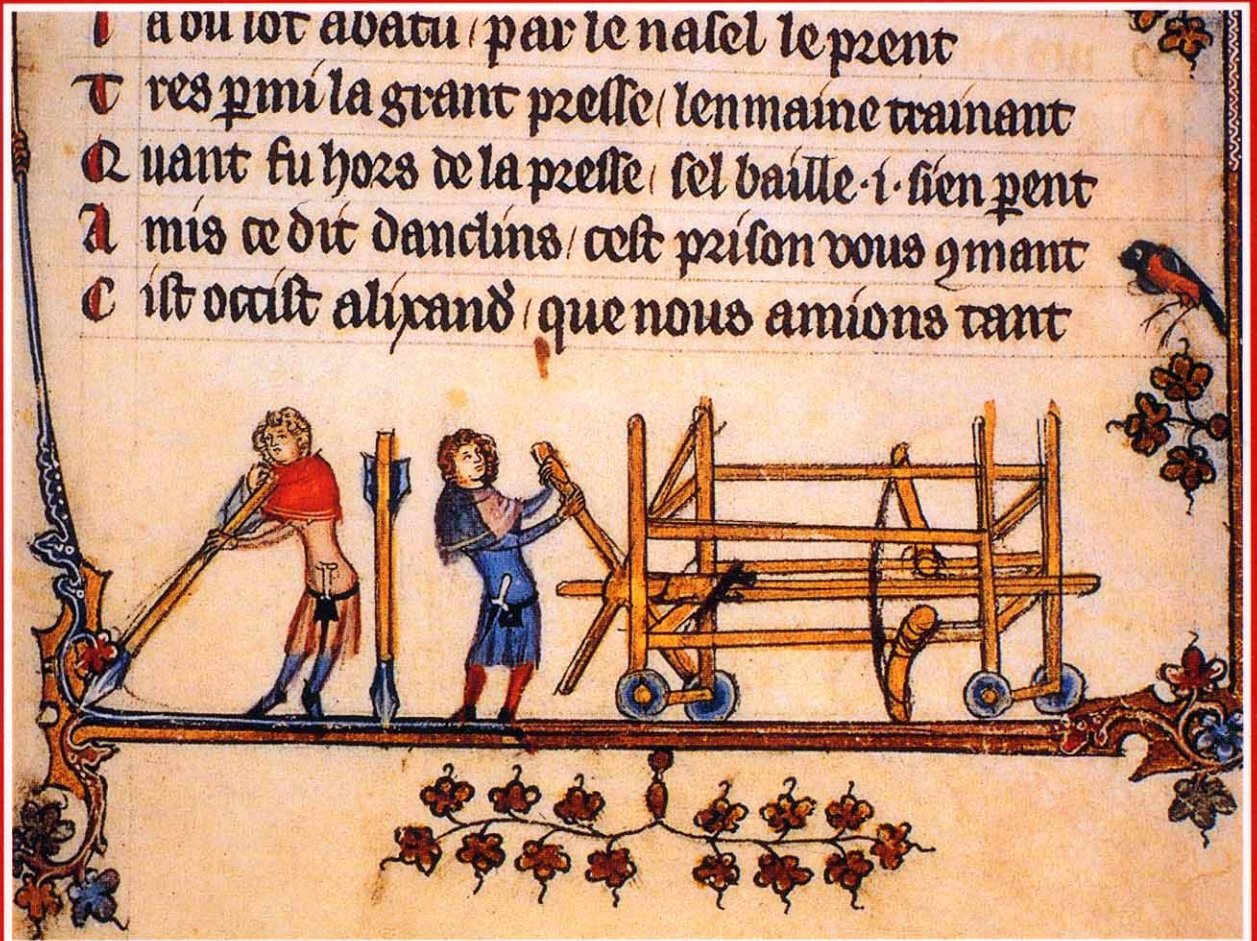 a ou lot abatu / par le nasel le prent
Tres pmi la grant presse / lenmaine trainant
Quant fu hors de la presse / sel baille ·i· sien pent
Amis ce dit danclins / cest prison vous 9mant
Cist occist alixand / que nous amions tant